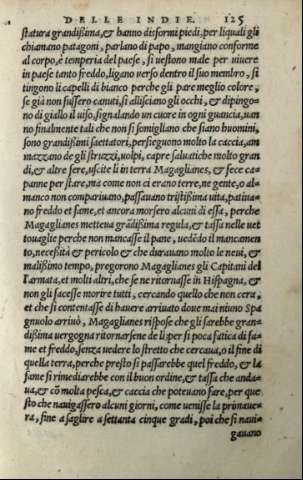 DELLE INDIE. 125
statura grandißima, & hanno disformi piedi, per liquali gli
chiamano patagoni, parlano di papo, mangiano conforme
al corpo, è temperia del paese, si uestono male per uiuere
in paese tanto freddo, ligano uerso dentro il suo membro, si
tingono li capelli di bianco perche gli pare meglio colore,
se già non fussero canuti, si allisciano gli occhi, & dipingo-
no di giallo il uiso, signalando un cuore in ogni guancia, uan
no finalmente tali che non si somigliano che siano huomini,
sono grandißimi saettatori, perseguono molto la caccia, am
mazzano de gli struzzi, uolpi, capre saluatiche molto gran
di, & altre fere, uscite li in terra Magaglianes, & fece ca-
panne per stare, ma come non ci erano terre, ne gente, o al-
manco non compariuano, passauano tristißima uita, patiua-
no freddo et fame, et ancora morsero alcuni di essa, perche
Magaglianes metteua grādißima regula, & tassa nelle uet
touaglie perche non mancasse il pane, uedēdo il mancamen
to, necessità & pericolo & che durauano molto le neui, &
malißimo tempo, pregorono Magaglianes gli Capitani del
l'armata, et molti altri, che se ne ritornasse in Hispagna, &
non gli facesse morire tutti, cercando quello che non cera,
et che si contentasse di hauere arriuato doue mai niuno Spa
gnuolo arriuò, Magaglianes rispose che gli sarebbe gran-
dißima uergogna ritornarsene de li per si poca fatica di fa-
me et freddo, senza uedere lo stretto che cercaua, o il fine di
quella terra, perche presto si passarebbe quel freddo, & la
fame si rimediarebbe con il buon ordine, & tassa che anda-
ua, & cō molta pesca, & caccia che poteuano fare, per que
sto che nauigassero alcuni giorni, come uenisse la primaue-
ra, fine a saglire a settanta cinque gradi, poi che si naui
gauano